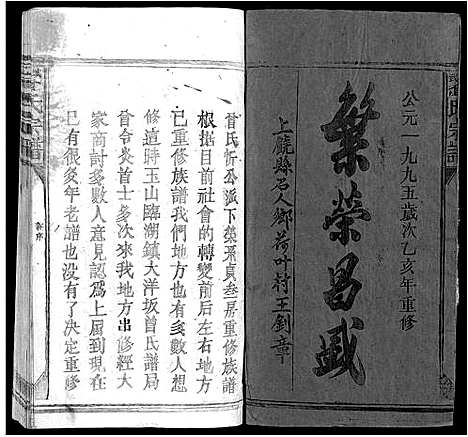 公元一九九五歲次乙亥年重修
繁榮昌盛
上饒縣石人鄉荷叶村王劉章
曾氏忻公派下榮系貞叁房重修族譜
根据目前社會的轉變前后左右地方
已重修族譜我們地方也有多數人想
修這時玉山臨湖鎮大洋坂曾氏譜局
曾令炎首士多次來我地方出修經大
家商討多數人意見認為上届到現在
已有很多年老譜也没有了决定重修